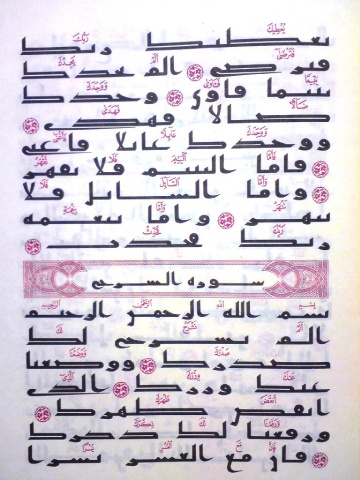 يعطيك ربك
فترضى ۝ الم يجدك
يتيما فاوى ۝ ووجدك
ضالا فهدى ۝
ووجدك عايلا فاغنى
۝ فاما اليتيم فلا تقهر
۝ واما السايل فلا
تنهر ۝ واما بنعمة
ربك فحدث ۝
سورة الشرح
بسم الله الرحمن الرحيم
الم نشرح لك
صدرك ۝ ووضعنا
عنك وزرك ۝ الذي
انقض ظهرك ۝
ورفعنا لك ذكرك
۝ فان مع العسر يسرا